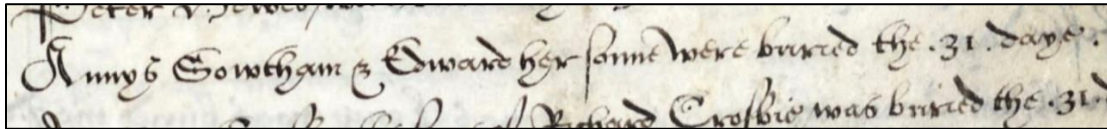 Peter
Annys Sowtham & Edward her sonne were buried the .31. daye.
Richard Crosbie was buried the .31.